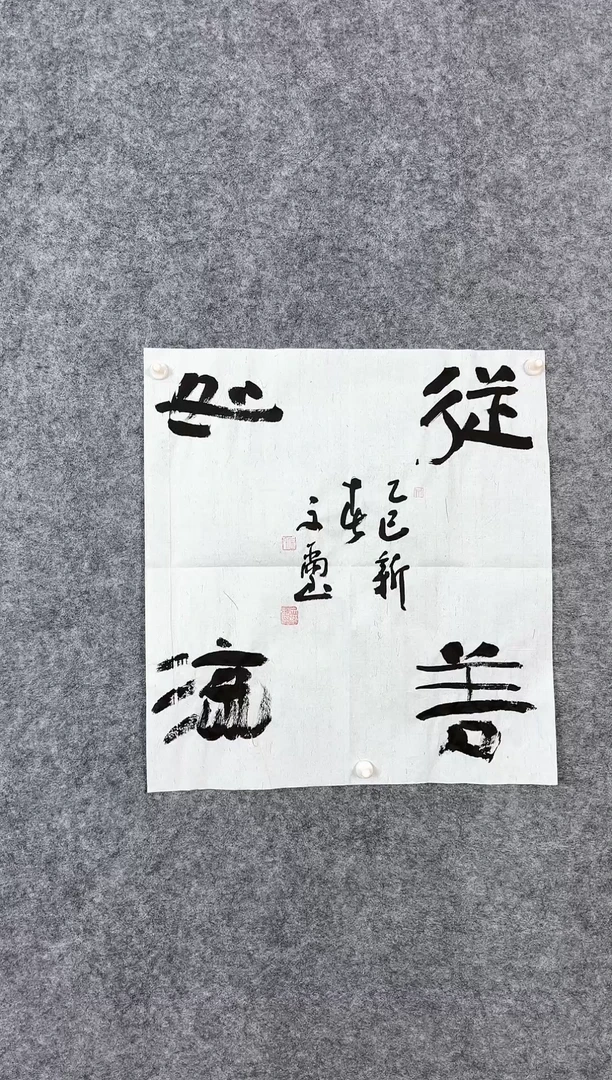 從善
如流
乙巳新
春